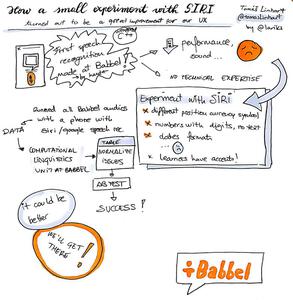 How a small experiment with SIRI
turned out to be a great improvement for our UX
Tomáš Linhart
@tomaslinhart
by @lariki
First speech
recognition
made at Babbel
C++
performance,
sound ...
NO TECHNICAL EXPERTISE
Experiment with SIRI
different position currency symbol
numbers with digits, no text
dates formats
...
Learners have accents!
at Babbel audios
with a phone with
Siri / google speech rec
DATA
COMPUTATIONAL
LINGUISTICS
UNIT AT BABBEL
TABLE
NORMALIZE
ISSUES
AB TEST
SUCCESS!
it could be
better
WE'LL GET
THERE!
÷Babbel